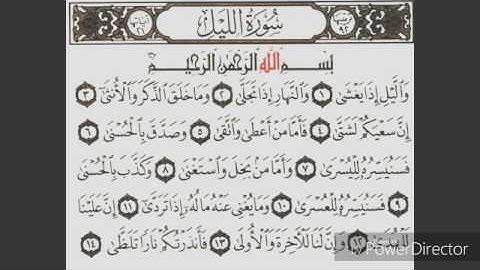 ترتيبها ٩٢ سُورَةُ اللَّيْلِ آياتها ٢١
بِسْمِ اللَّهِ الرَّحْمَٰنِ الرَّحِيمِ
وَاللَّيْلِ إِذَا يَغْشَىٰ ١ وَالنَّهَارِ إِذَا تَجَلَّىٰ ٢ وَمَا خَلَقَ الذَّكَرَ وَالْأُنثَىٰ ٣
إِنَّ سَعْيَكُمْ لَشَتَّىٰ ٤ فَأَمَّا مَنْ أَعْطَىٰ وَاتَّقَىٰ ٥ وَصَدَّقَ بِالْحُسْنَىٰ ٦
فَسَنُيَسِّرُهُ لِلْيُسْرَىٰ ٧ وَأَمَّا مَنْ بَخِلَ وَاسْتَغْنَىٰ ٨ وَكَذَّبَ بِالْحُسْنَىٰ
٩ فَسَنُيَسِّرُهُ لِلْعُسْرَىٰ ١٠ وَمَا يُغْنِي عَنْهُ مَالُهُ إِذَا تَرَدَّىٰ ١١ إِنَّ عَلَيْنَا
لَلْهُدَىٰ ١٢ وَإِنَّ لَنَا لَلْآخِرَةَ وَالْأُولَىٰ ١٣ فَأَنذَرْتُكُمْ نَارًا تَلَظَّىٰ ١٤
PowerDirector